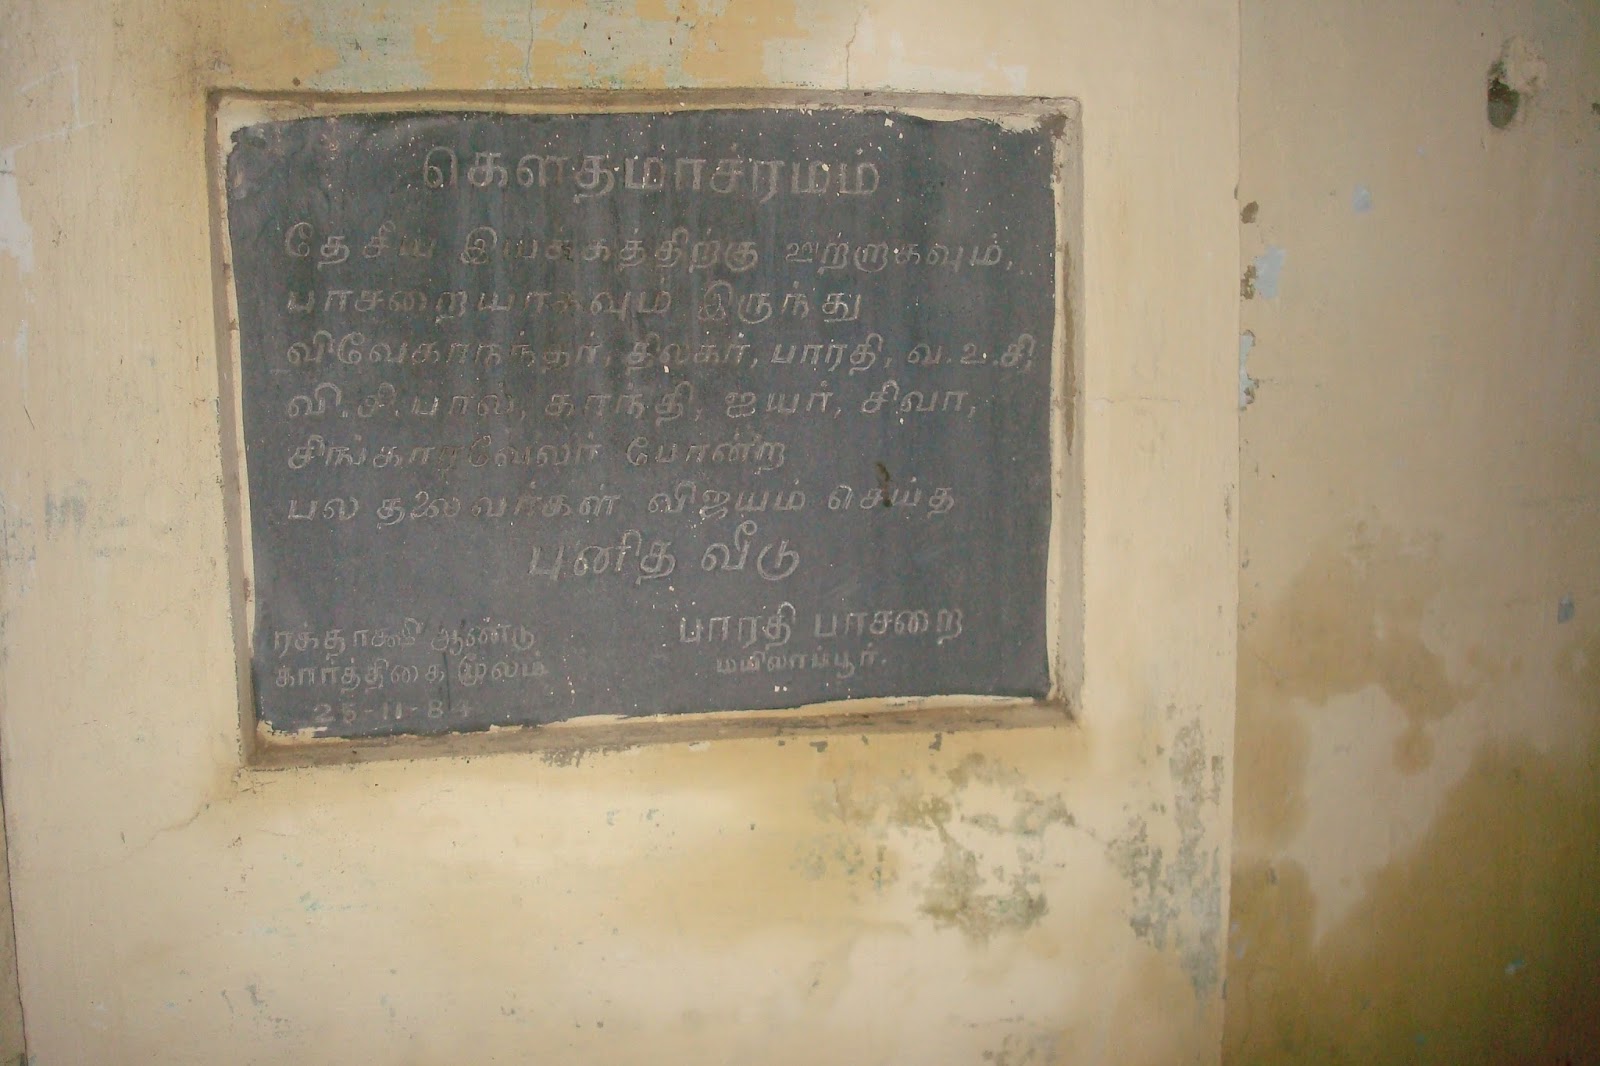 கௌதமாச்ரமம்
தேசீய இயக்கத்திற்கு ஊற்றாகவும்,
பாசறையாகவும் இருந்து
விவேகாநந்தர், திலகர், பாரதி, வ.உ.சி,
வி.சி.பால், காந்தி, ஐயர், சிவா,
சிங்காரவேலர் போன்ற
பல தலைவர்கள் விஜயம் செய்த
புனித வீடு
பாரதி பாசறை
மயிலாப்பூர்.
ரக்தாக்ஷி ஆண்டு
கார்த்திகை மூலம்
25-11-84